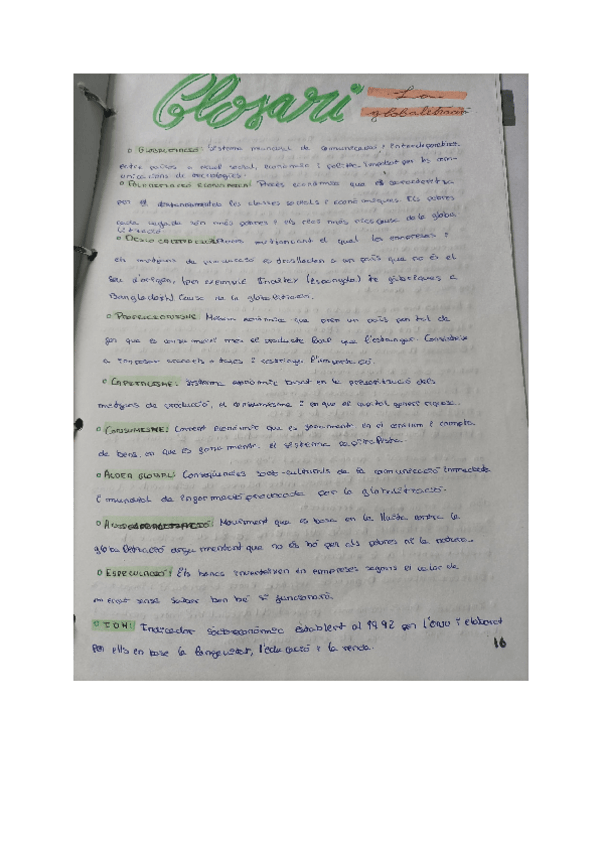 Glosari
La
globalització
GLOBALITZACIÓ: Sistema mundial de comunicació i interdependència
entre països a nivell social, econòmic i polític impulsat per les com-
unicacions de tecnologies.
econòmica: Procés econòmic que es caracteritza
per el de les classes socials i econòmiques. Els pobres
cada vegada són més pobres i els rics més rics cause de la globa
litzacio.
mitjançant el qual les empreses i
els mitjans de producció es deslloquen a un país que no és el
seu d'origen, (per exemple Inditex (Espanyola) té fàbriques a
Bangladesh) Causa de la globalització.
PROTECCIONISME: Mesura econòmica que pren un país per tal de
fer que es consumeixi més el producte local que l'estranger. Consisteix
a imposar aranzels o taxes i restringir l'importació.
CAPITALISME: Sistema econòmic basat en la dels
mitjans de producció, el consumisme i en que el capital generi riquesa.
CONSUMISME: Corrent econòmic que es fonamenta en el consum i compra
de bens, en que es fonamenta el sistema capitalista.
ALDEA GLOBAL: Conseqüències socio-culturals de la comunicació immediata
i mundial de informació provocada per la globalització.
Moviment que es basa en la lluita contra la
globalització argumentant que no és bó per als pobres ni la natura.
ESPECULACIÓ: Els bancs inverteixen en empreses segons el valor de
mercat sense saber ben bé si funcionarà.
IDH: Indicador socioeconòmic establert al 1992 per l'ONU i elaborat
per ells en base la longevitat, l'educació i la renda.
16